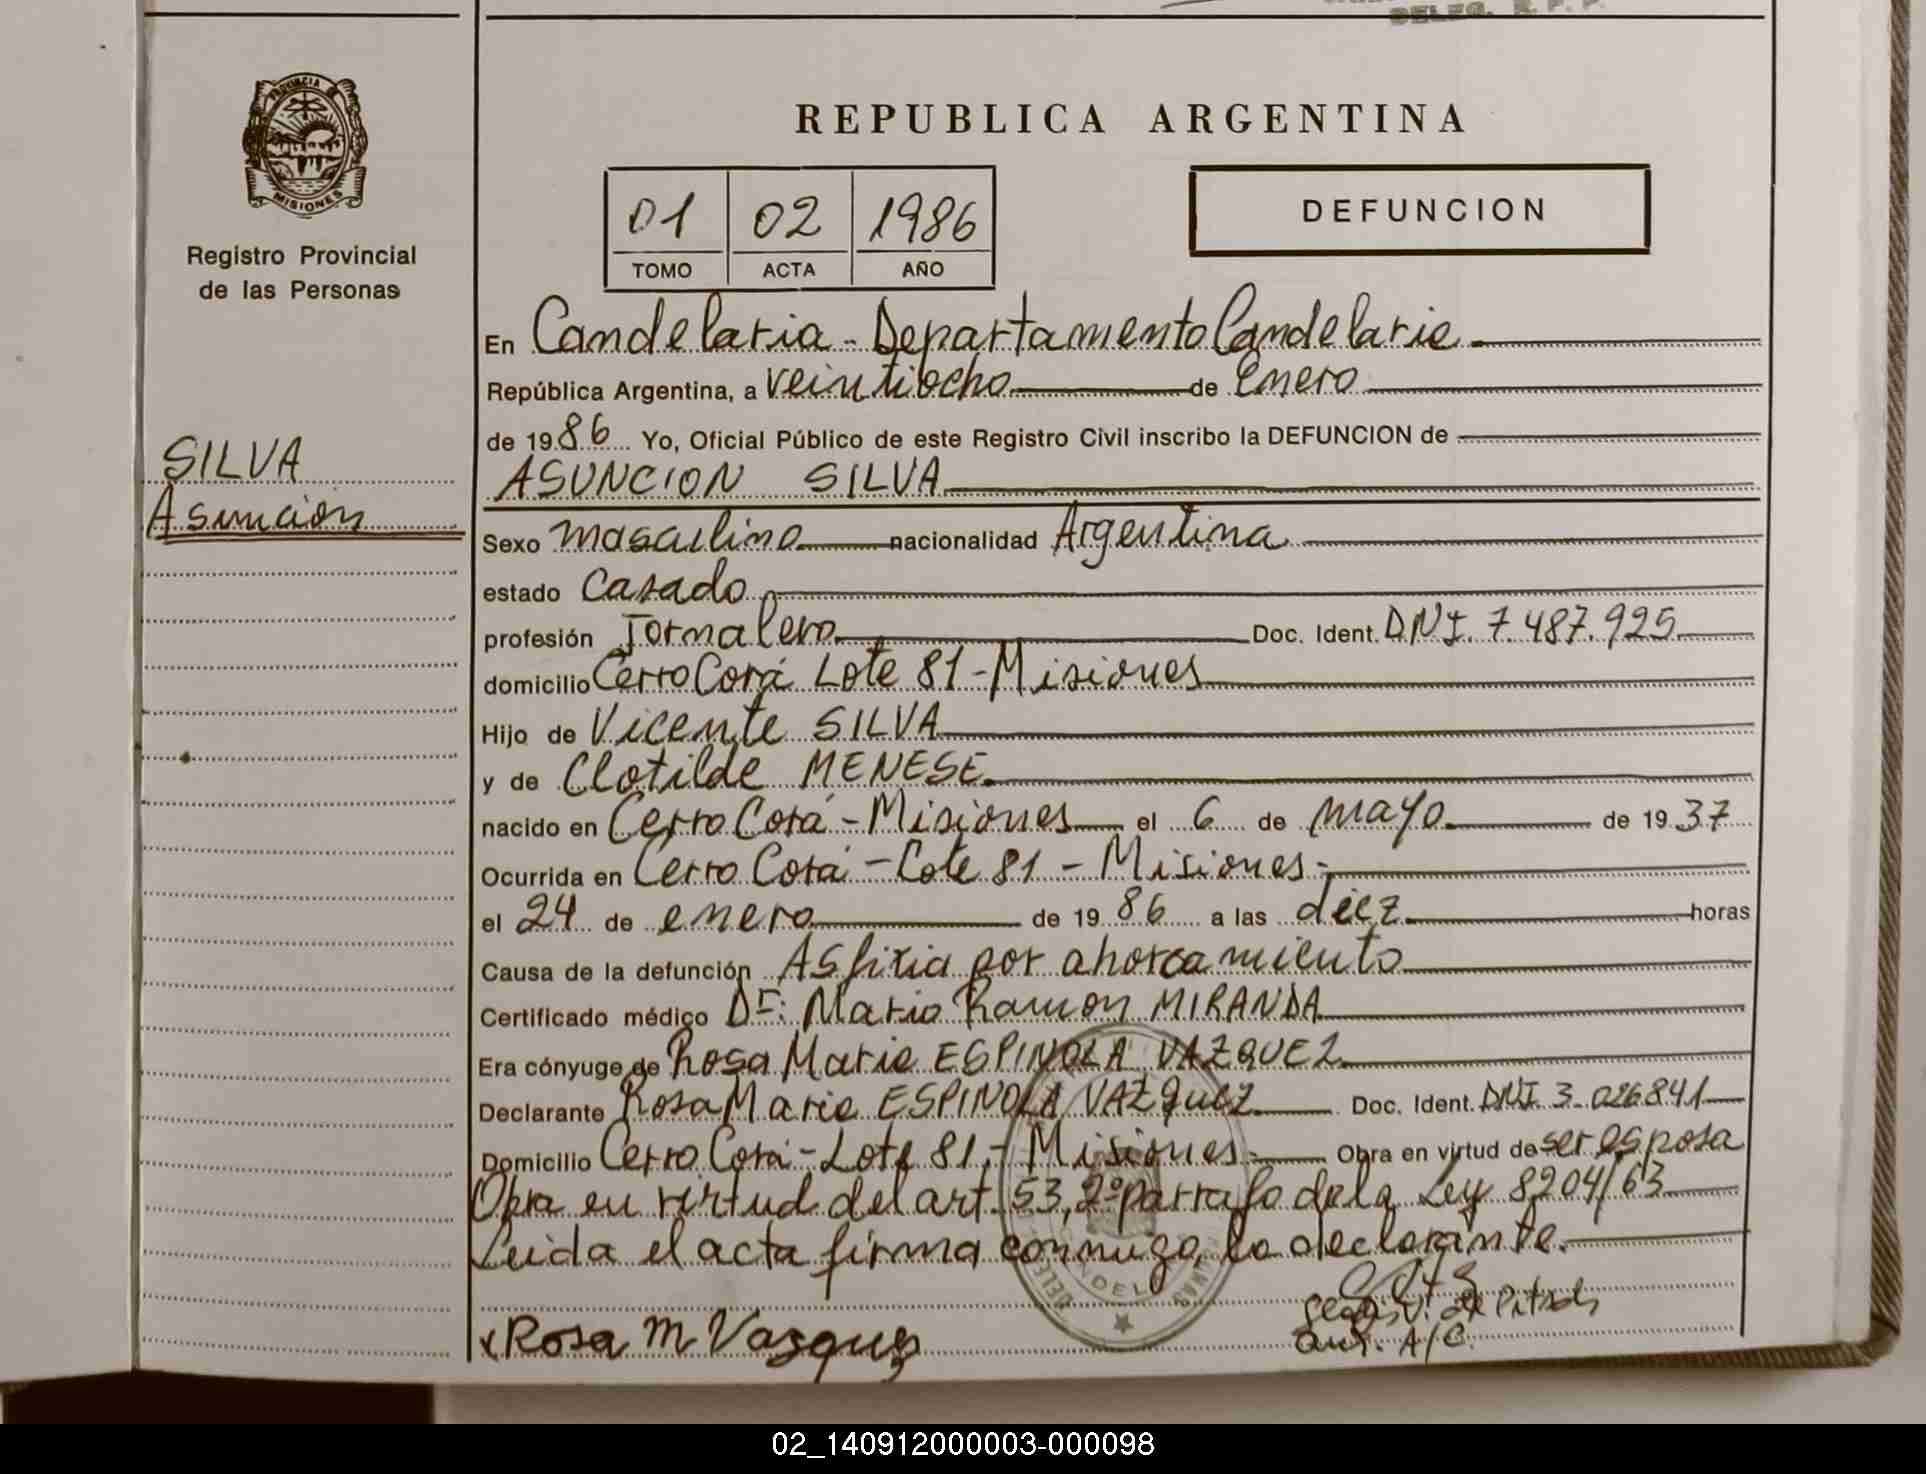 DELEG. R. P. P.
PROVINCIA DE
MISIONES
Registro Provincial
de las Personas
SILVA
Asunción
REPUBLICA ARGENTINA
01 02 1986
TOMO ACTA AÑO
DEFUNCION
En Candelaria - Departamento Candelaria
República Argentina, a veintiocho de Enero
de 1986 Yo, Oficial Público de este Registro Civil inscribo la DEFUNCION de
ASUNCION SILVA
Sexo masculino nacionalidad Argentina
estado Casado
profesión Jornalero Doc. Ident. DNI. 7.487.925
domicilio Cerro Corá Lote 81 - Misiones
Hijo de Vicente SILVA
y de Clotilde MENESE
nacido en Cerro Corá - Misiones el 6 de mayo de 1937
Ocurrida en Cerro Corá - Lote 81 - Misiones -
el 24 de enero de 1986 a las diez horas
Causa de la defunción Asfixia por ahorcamiento
Certificado médico Dr: Mario Ramon MIRANDA
Era cónyuge de Rosa Maria ESPINOLA VAZQUEZ
Declarante Rosa Maria ESPINOLA VAZQUEZ Doc. Ident. DNI 3.026841
Domicilio Cerro Corá - Lote 81 - Misiones - Obra en virtud de ser esposa
Obra en virtud del art. 53, 2º parrafo de la Ley 8204/63
Leida el acta firma conmigo, la declarante.
x Rosa M Vazquez
Aux. A/C.
02_140912000003-000098